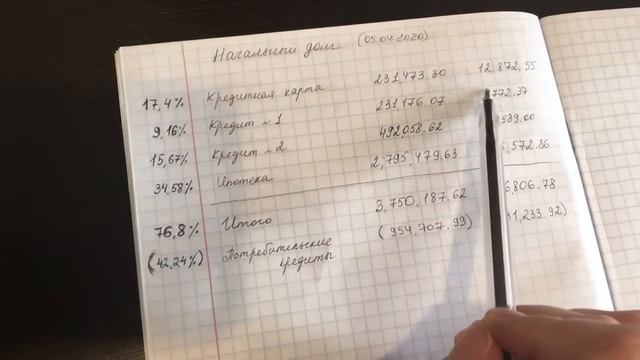 Начальный долг (05.04.2020)
17,4% Кредитная карта 231,473.30 12,872.55
9,16% Кредит №1 231,176.07 772.37
15,67% Кредит №2 492,058.62 589.00
34,58% Ипотека 2,795,479.63 5,572.86
76,8% Итого 3,750,187,62 6,806.78
(42,24%) Потребительские кредиты (954,707.99) 1,233.92)